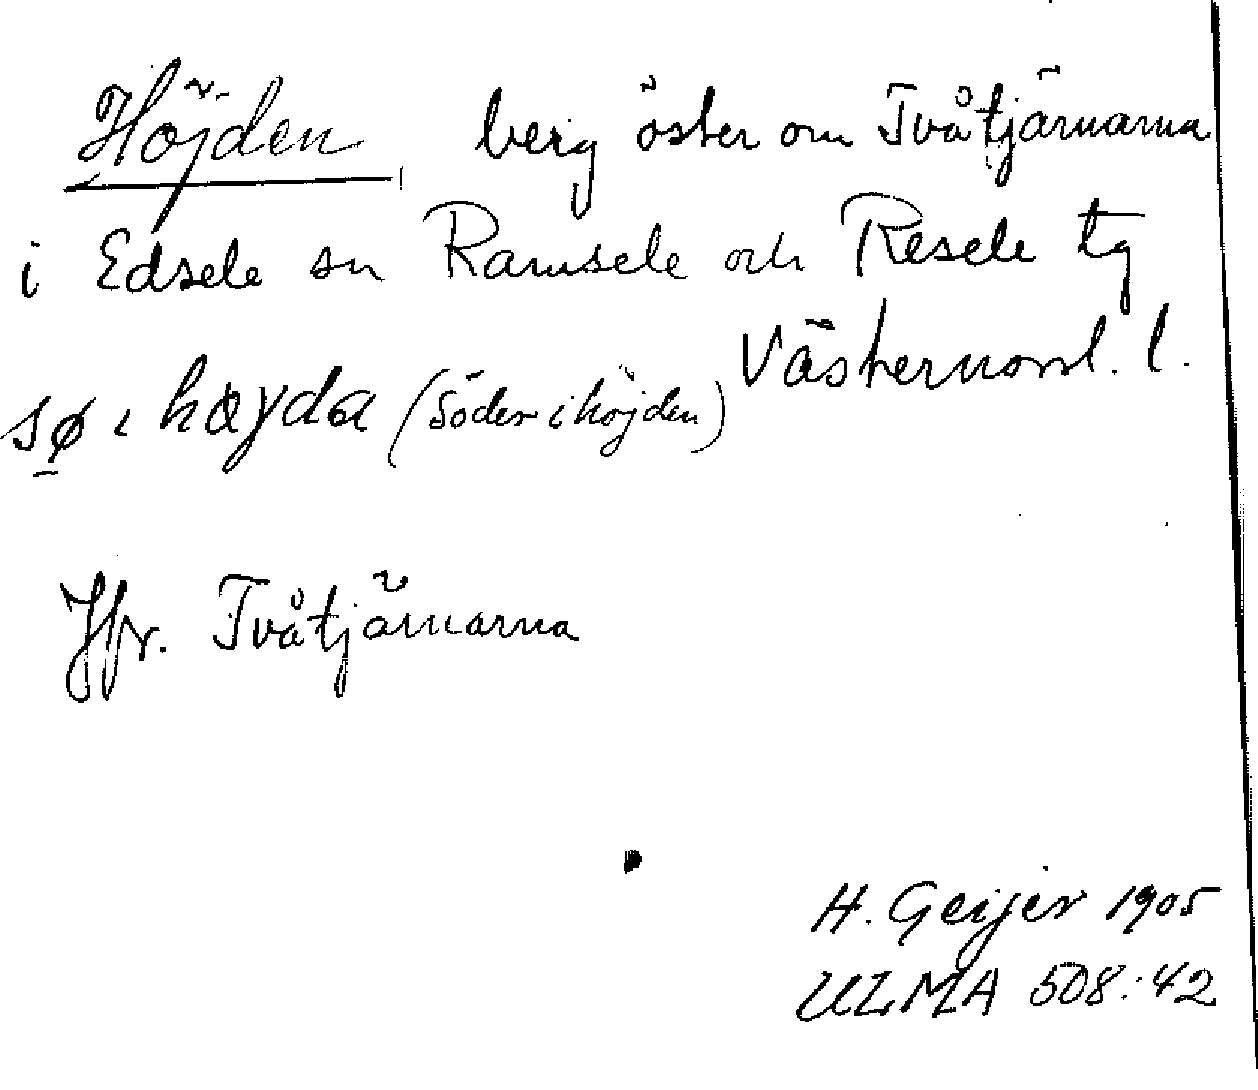 Höjden, berg öster om Tvåtjärnarna
i Edsele sn Ramsele och Resele tg
Västernorrl. l.
sø ı hɑyda (söder i höjden)
Jfr. Tvåtjärnarna
H. Geijer 1905
ULMA 508:42